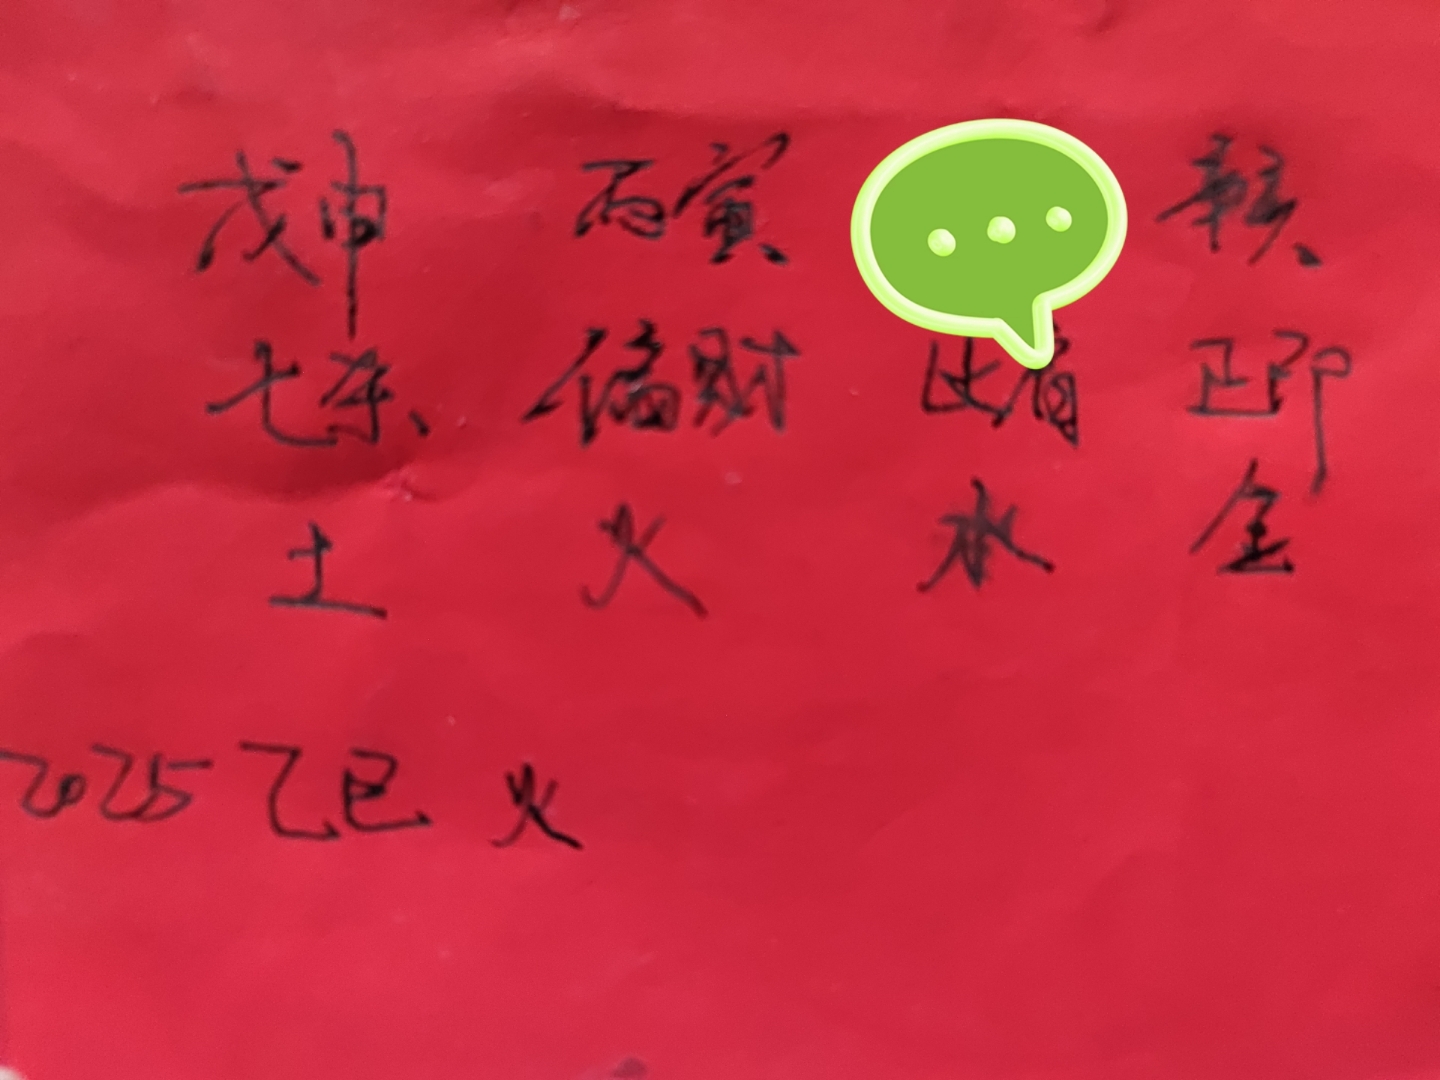 戊申 丙寅 辛亥
七杀 偏财 比肩 正印
土 火 水 金
2025 乙巳 火